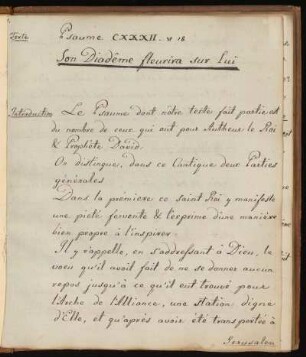 Texte
Psaume CXXXII. v 18.
Son Diadème fleurira sur lui
Introduction
Le Psaume dont nôtre texte fait partie est
du nombre de ceux qui ont pour Autheur le Roi
& Prophète David.
On distingue, dans ce Cantique deux Parties
générales.
Dans la première ce saint Roi y manifeste
une piété fervente & l'exprime d'une manière
bien propre à l'inspirer.
Il y rappelle, en s'addressant à Dieu, le
voeu qu'il avoit fait de ne se donner aucun
repos jusqu'à ce qu'il eut trouvé pour
l'Arche de l'Alliance, une station digne
d'Elle, et qu'après avoir été transportée à
Jerusalem